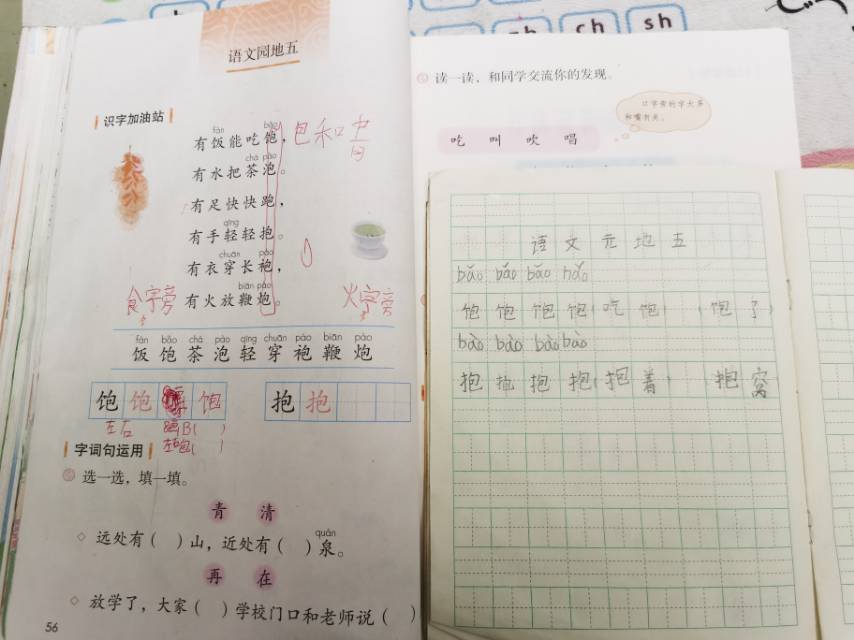 ch sh
语文园地五
识字加油站
fàn bǎo
有饭能吃饱，
包和口
chá pào
有水把茶泡。
有足快快跑，
qīng
有手轻轻抱。
chuān páo
有衣穿长袍，
biān pào
有火放鞭炮。
食字旁
火字旁
fàn bǎo chá pào qīng chuān páo biān pào
饭 饱 茶 泡 轻 穿 袍 鞭 炮
饱 饱 饱
抱 抱
左右
字词句运用
选一选，填一填。
青 清
远处有（ ）山，近处有（ ）泉。
quán
再 在
放学了，大家（ ）学校门口和老师说（ ）
56
读一读，和同学交流你的发现。
口字旁的字大多
和嘴有关。
吃 叫 吹 唱
语 文 元 地 五
bǎo bǎo bǎo
饱 饱 饱 饱（吃 饱）（饱 了）
bào bào bào bào
抱 抱 抱 抱（抱 着）（抱 窝